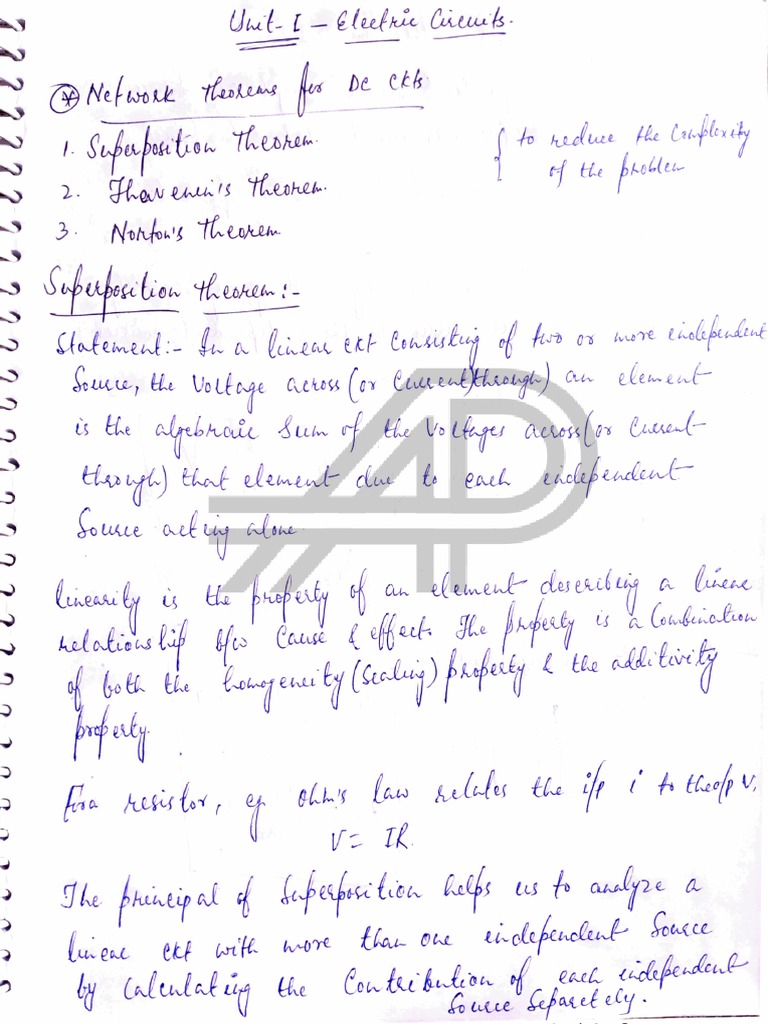 Unit-I – Electric Circuits.
Network theorems for DC ckts
1. Superposition Theorem.
{ to reduce the complexity
of the problem
2. Thevenin's Theorem.
3. Norton's Theorem.
Superposition theorem:-
Statement:- In a linear ckt consisting of two or more independent
Source, the voltage across (or current) through) an element
is the algebraic sum of the voltages across (or current
through) that element due to each independent
Source acting alone
AP
linearity is the property of an element describing a linear
relationship b/w cause & effect. The property is a combination
of both the homogeneity (scaling) property & the additivity
property.
For a resistor, eg ohm's law relates the i/p i to the o/p V,
V = IR
The principal of superposition helps us to analyze a
linear ckt with more than one independent source
by calculating the contribution of each independent
source separetely.